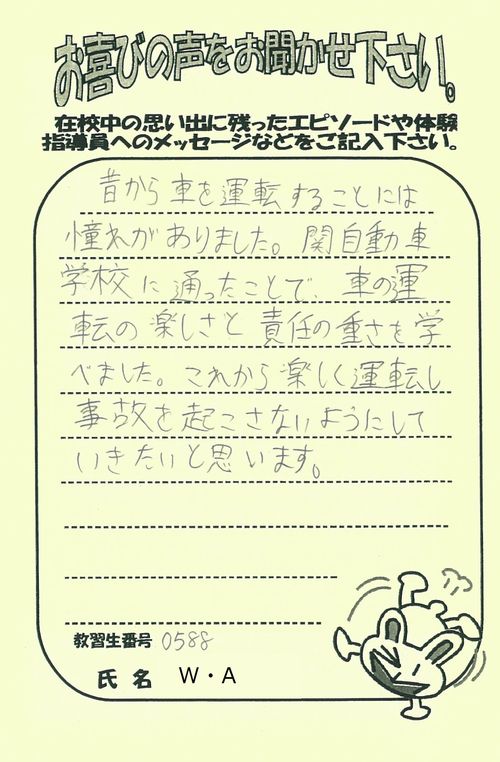 お喜びの声をお聞かせ下さい。
在校中の思い出に残ったエピソードや体験
指導員へのメッセージなどをご記入下さい。
昔から車を運転することには
憧れがありました。関自動車
学校に通ったことで、車の運
転の楽しさと責任の重さを学
べました。これから楽しく運転し
事故を起こさないようにして
いきたいと思います。
教習生番号 0588
氏名 W・A